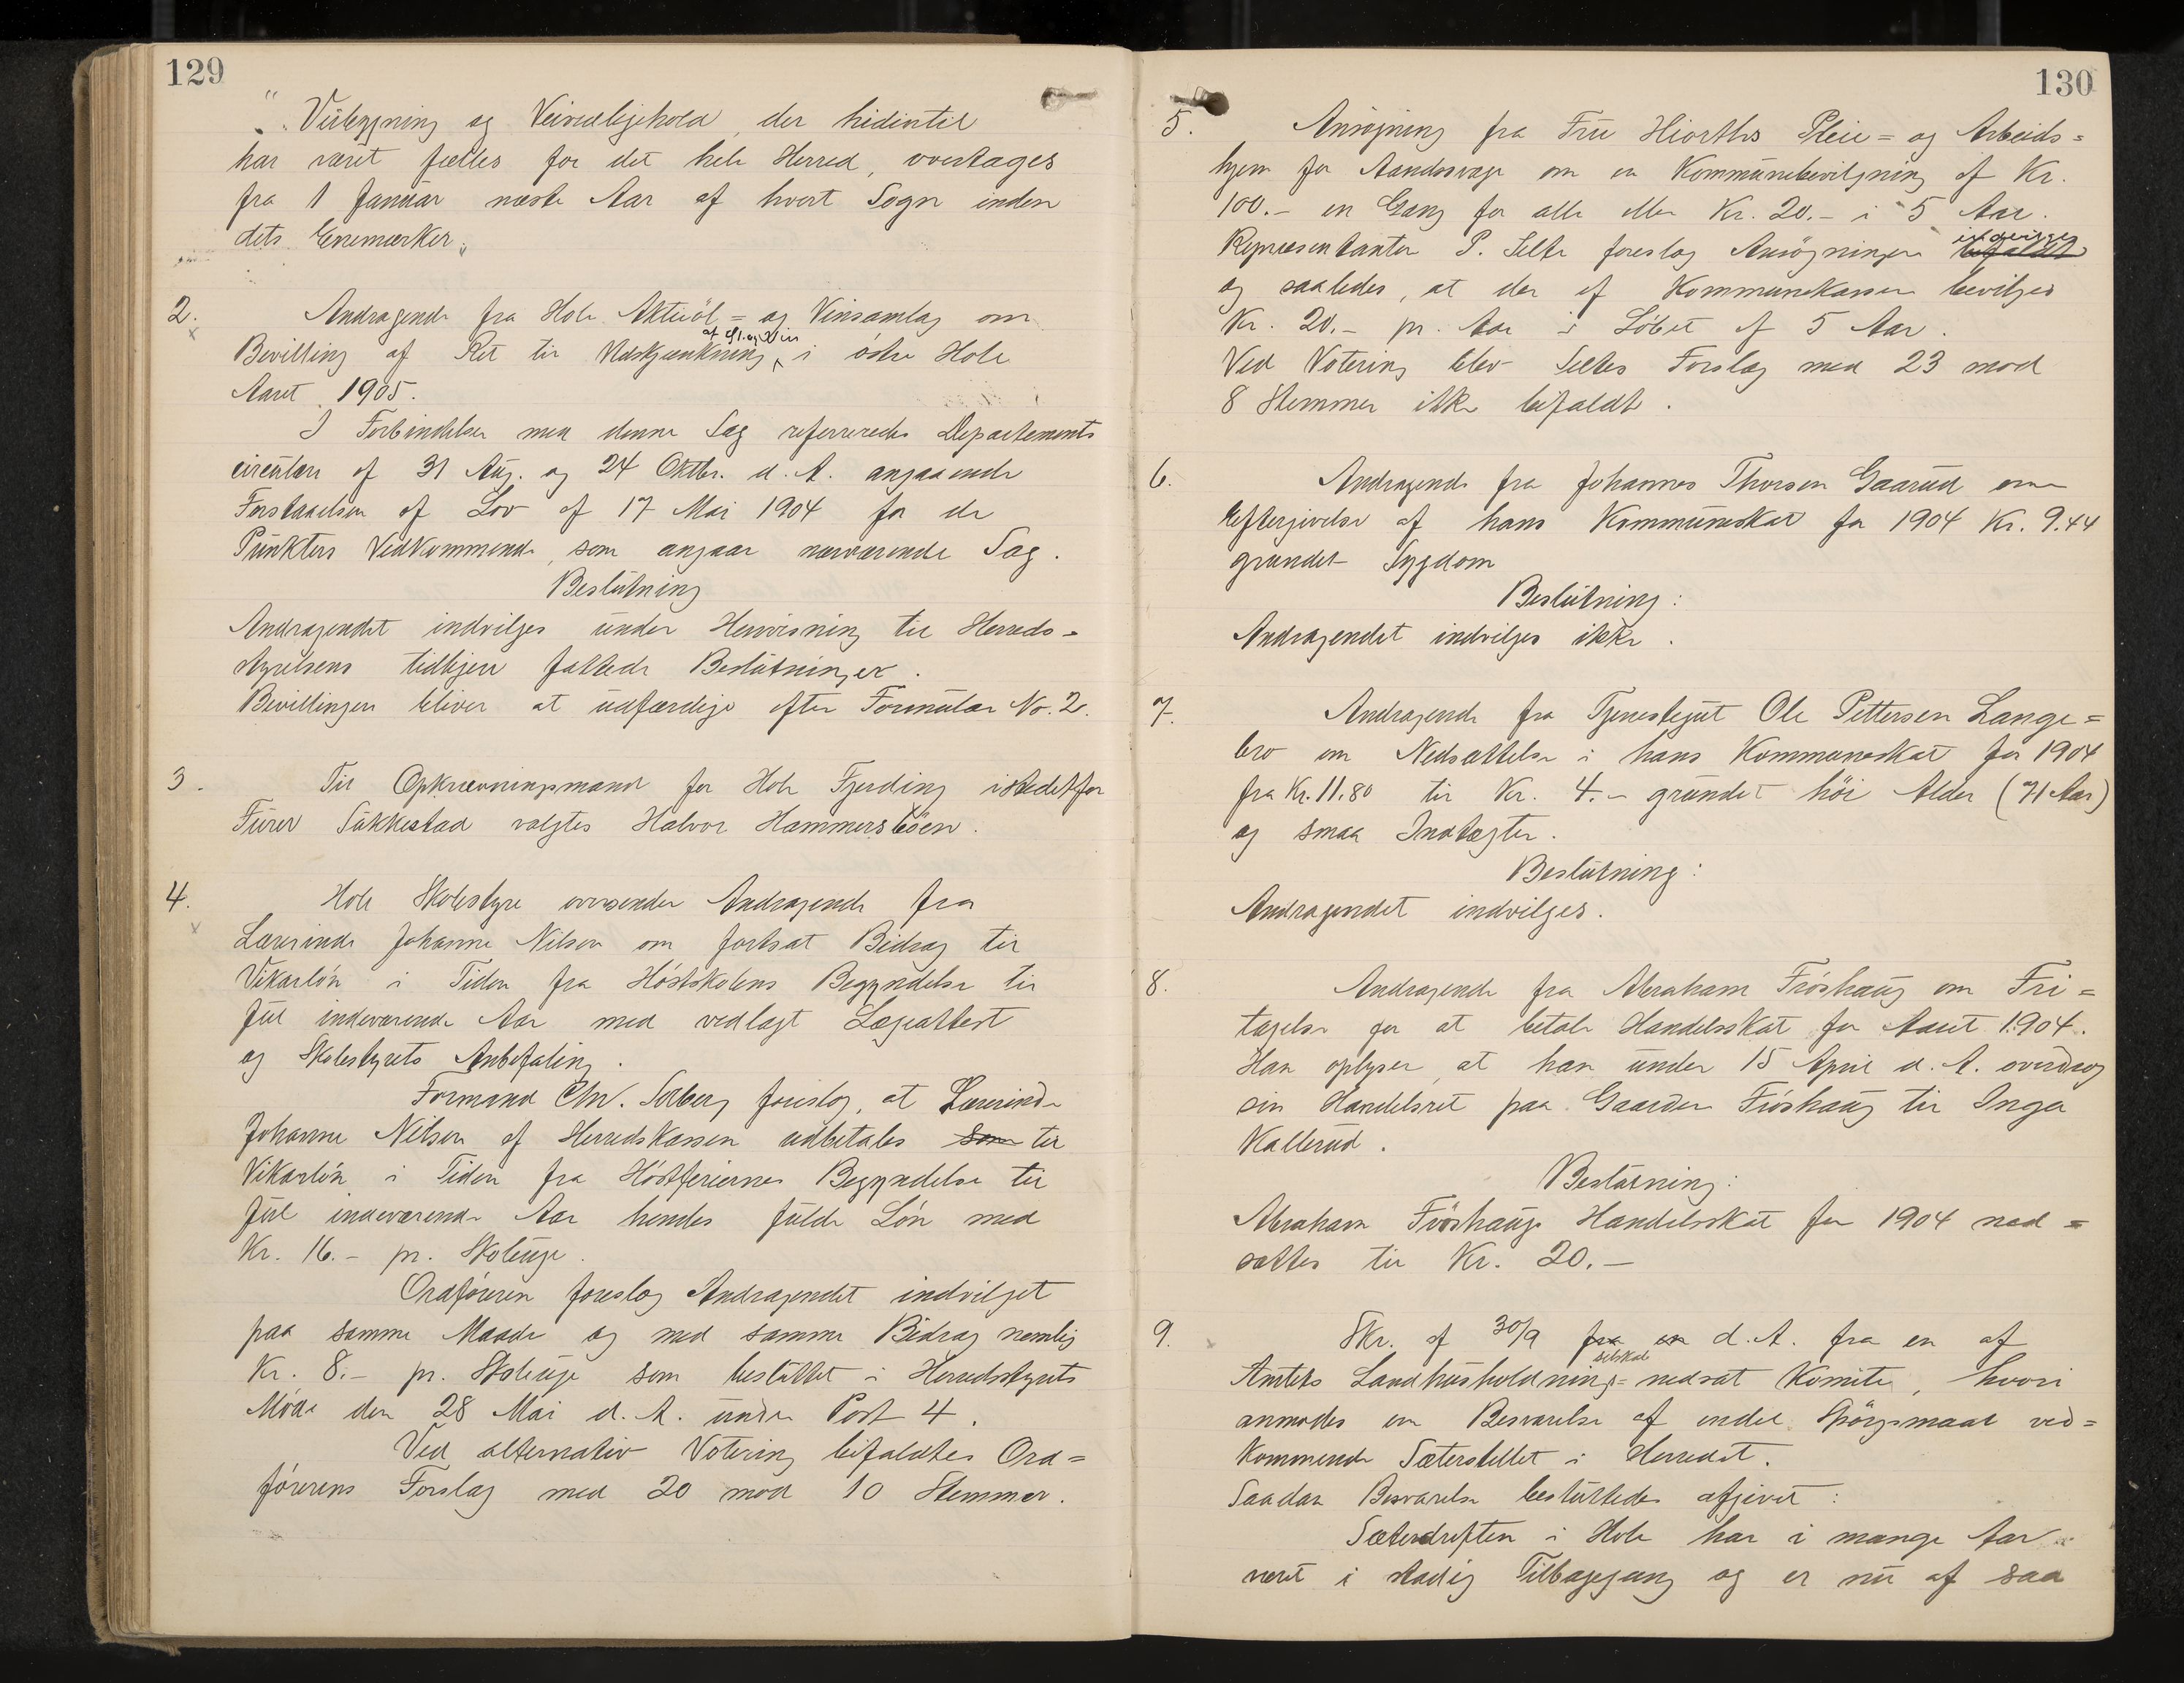 129
„Veibygning og Veivedligehold, der hidintil
har været fælles for det hele Herred, overtages
fra 1 Januar næste Aar af hvert Sogn inden
dets Enemærker„
2. Andragende fra Hole Aktieøl= og Vinsamlag om
Bevilling af Ret til Udskjænkning af Øl og Vin i østre Hole
Aaret 1905.
I Forbindelse med denne Sag refereredes Departements
circulære af 31 Aug. og 24 Oktbr. d. A. angaaende
Forstaaelsen af Lov af 17 Mai 1904 for de
Punkters Vedkommende, som angaar nærværende Sag.
Beslutning
Andragendet indvilges under Henvisning til Herreds=
styrelsens tidligere fattede Beslutninger.
Bevillingen bliver at udfærdige efter Formular No. 2.
3. Til Opkrævningsmand for Hole Fjerding istedetfor
Furer Sækkestad valgtes Halvor Hammersbøen.
4. Hole Skolestyre oversender Andragende fra
Lærerinde Johanne Nilsen om fortsat Bidrag til
Vikarløn i Tiden fra Høstskolens Begyndelse til
Jul indeværende Aar med vedlagt Lægeattest
og Skolestyrets Anbefaling.
Formand Chr. Solberg foreslog, at Lærerinde
Johanne Nilsen af Herredskassen udbetales som til
Vikarløn i Tiden fra Høstferiernes Begyndelse til
Jul indeværende Aar hendes fulde Løn med
Kr. 16.- pr. Skoleuge.
Ordføreren foreslog Andragendet indvilget
paa samme Maade og med samme Bidrag nemlig
Kr. 8.- pr. Skoleuge som besluttet i Herredsstyrets
Møde den 28 Mai d. A. under Post 4.
Ved alternativ Votering bifaldtes Ord=
førerens Forslag med 20 mod 10 Stemmer.
130
5. Ansøgning fra Fru Hiorths Pleie= og Arbeids=
hjem for Aandssvage om en Kommunebevilgning af Kr.
100.- en Gang for alle eller Kr. 20.- i 5 Aar.
Repræsentanten P. Selte foreslog Ansøgningen bifaldt indvilget
og saaledes, at der af Kommunekassen bevilges
Kr. 20.- pr. Aar i Løbet af 5 Aar.
Ved Votering blev Seltes Forslag med 23 mod
8 Stemmer ikke bifaldt.
6. Andragende fra Johannes Thorsen Gaarud om
Eftergivelse af hans Kommuneskat for 1904 Kr. 9.44
grundet Sygdom
Beslutning:
Andragendet indvilges ikke.
7. Andragende fra Tjenestegut Ole Pettersen Lange=
bro om Nedsættelse i hans Kommuneskat for 1904
fra Kr. 11.80 til Kr. 4.- grundet høi Alder (71 Aar)
og smaa Indtægter.
Beslutning:
Andragendet indvilges.
8. Andragende fra Abraham Frøshaug om Fri=
tagelse for at betale Handelsskat for Aaret 1904.
Han oplyser, at han under 15 April d. A. overdrog
sin Handelsret paa Gaarden Frøshaug til Inga
Kallerud.
Beslutning:
Abraham Frøshaugs Handelsskat for 1904 ned=
sættes til Kr. 20.-
9. Skr. af 30/9 fra en d. A. fra en af
Amtets Landhusholdnings=selskab nedsat Komite, hvori
anmodes om Besvarelse af endel Spørgsmaal ved=
kommende Sæterstellet i Herredet.
Saadan Besvarelse besluttedes afgivet:
Sæterdriften i Hole har i mange Aar
været i stadig Tilbagegang og er nu af saa